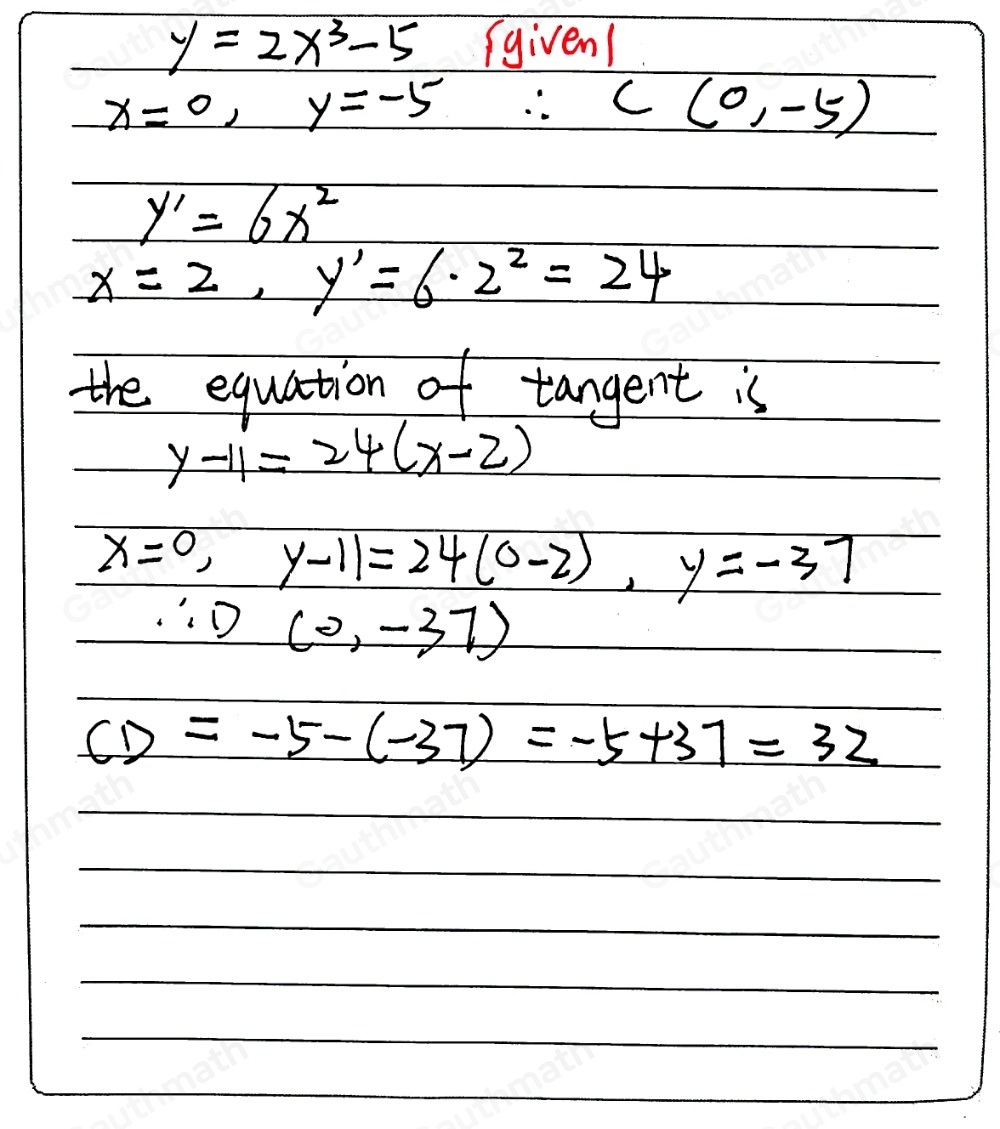 y = 2x³ - 5 [given]
x = 0, y = -5 ∴ C (0, -5)
y' = 6x²
x = 2, y' = 6 · 2² = 24
the equation of tangent is
y - 11 = 24(x - 2)
x = 0, y - 11 = 24(0 - 2), y = -37
∴ D (0, -37)
CD = -5 - (-37) = -5 + 37 = 32